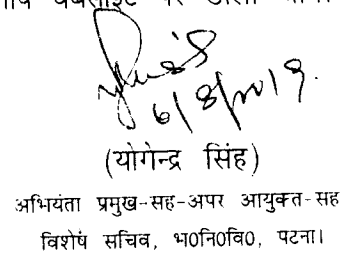 वेबसाईट पर डाला
6/8/2019.
(योगेन्द्र सिंह)
अभियंता प्रमुख-सह-अपर आयुक्त-सह
विशेष सचिव, भ0नि0वि0, पटना।